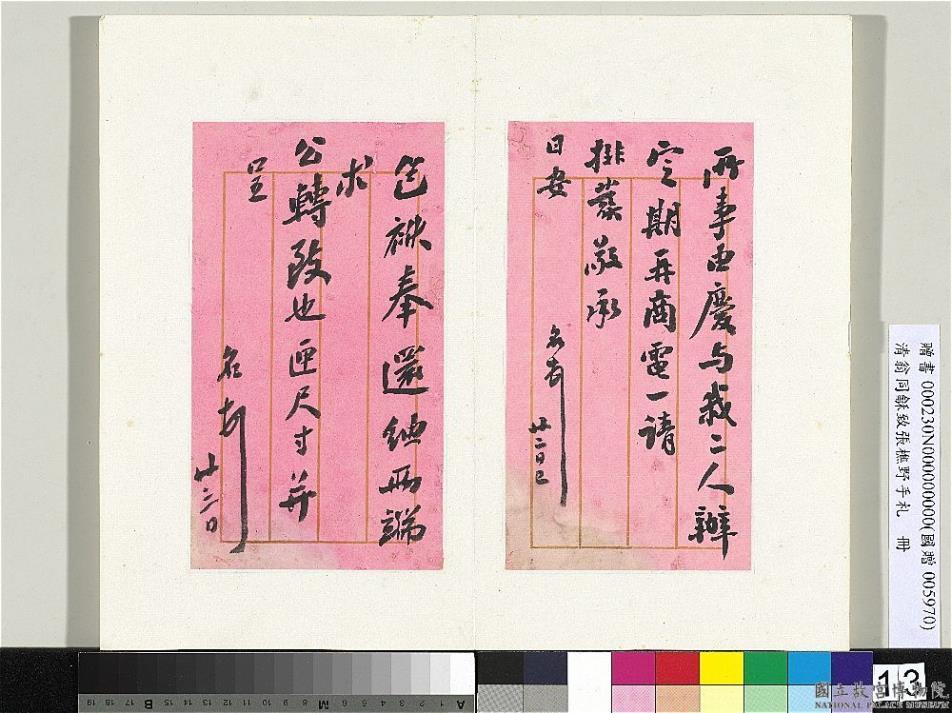 兩事由慶与我二人辦
定期再商電一請
排蒸敬承
日安
名心叩
廿二日巳
包袱奉還紬兩端
求
公轉致也匣尺寸并
呈
名心叩
廿三日
贈書 000230N000000000(國贈 005970)
清翁同龢致張樵野手札 冊
13
國立故宮博物院
NATIONAL PALACE MUSEUM
19 18 17 16 15 B 14 13 12 11 10 9 8 M 7 6 5 4 3 2 1 A